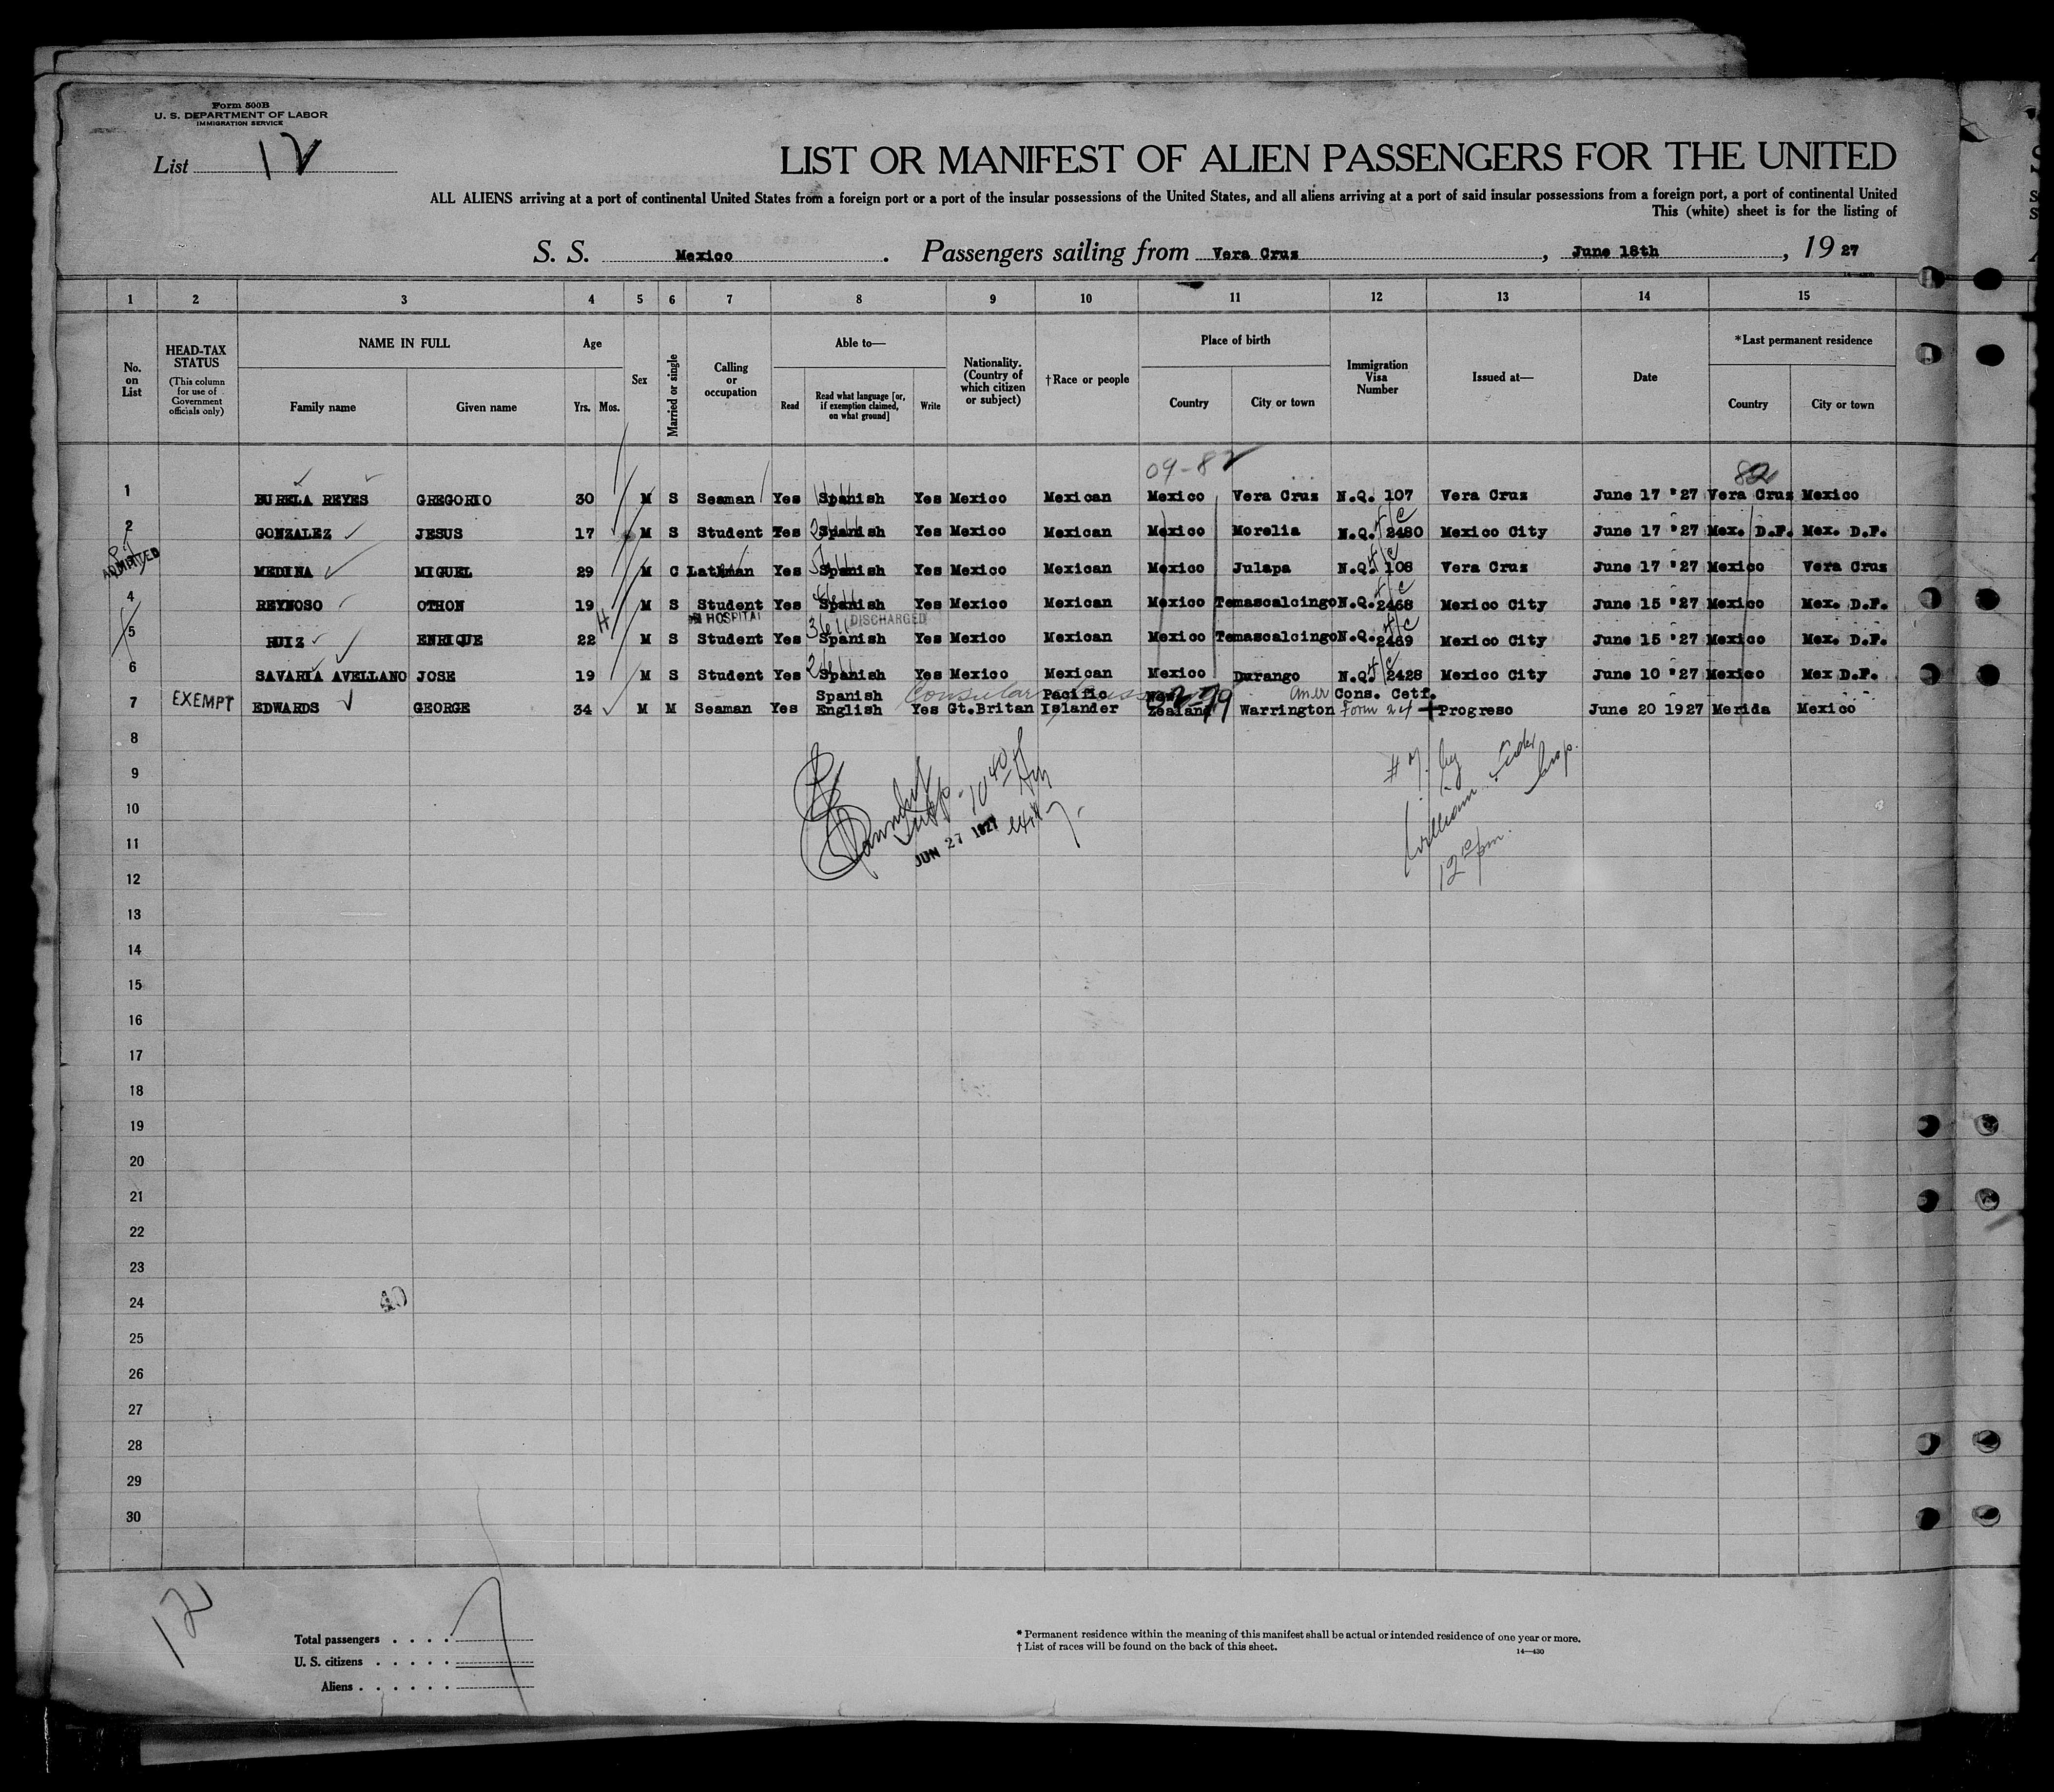 Form 500B
U. S. DEPARTMENT OF LABOR
IMMIGRATION SERVICE
List 12
LIST OR MANIFEST OF ALIEN PASSENGERS FOR THE UNITED
ALL ALIENS arriving at a port of continental United States from a foreign port or a port of the insular possessions of the United States, and all aliens arriving at a port of said insular possessions from a foreign port, a port of continental United
This (white) sheet is for the listing of
S. S. Mexico. Passengers sailing from Vera Cruz, June 18th, 1927
1 2 3 4 5 6 7 8 9 10 11 12 13 14 15
No. on List
HEAD-TAX STATUS
(This column for use of Government officials only)
NAME IN FULL
Family name Given name
Age
Yrs. Mos.
Sex
Married or single
Calling or occupation
Able to—
Read
Read what language [or, if exemption claimed, on what ground]
Write
Nationality. (Country of which citizen or subject)
†Race or people
Place of birth
Country City or town
Immigration Visa Number
Issued at—
Date
*Last permanent residence
Country City or town
09-82
82
1 BURELA REYES GREGORIO 30 M S Seaman Yes Spanish Yes Mexico Mexican Mexico Vera Cruz N.Q. 107 Vera Cruz June 17 '27 Vera Cruz Mexico
2 GONZALEZ JESUS 17 M S Student Yes Spanish Yes Mexico Mexican Mexico Morelia N.Q. 2480 Mexico City June 17 '27 Mex. D.F. Mex. D.F.
ADMITTED MEDINA MIGUEL 29 M C Lathman Yes Spanish Yes Mexico Mexican Mexico Julapa N.Q. 108 Vera Cruz June 17 '27 Mexico Vera Cruz
4 REYNOSO OTHON 19 M S Student Yes Spanish Yes Mexico Mexican Mexico Temascalcingo N.Q. 2468 Mexico City June 15 '27 Mexico Mex. D.F.
IN HOSPITAL DISCHARGED
5 RUIZ ENRIQUE 22 M S Student Yes Spanish Yes Mexico Mexican Mexico Temascalcingo N.Q. 2469 Mexico City June 15 '27 Mexico Mex. D.F.
6 SAVARIA AVELLANO JOSE 19 M S Student Yes Spanish Yes Mexico Mexican Mexico Durango N.Q. 2428 Mexico City June 10 '27 Mexico Mex D.F.
7 EXEMPT EDWARDS GEORGE 34 M M Seaman Yes Spanish English Yes Gt.Britan Pacific Islander New Zealand Warrington Cons. Cetf. Form 24 Progreso June 20 1927 Merida Mexico
Consular
8
9
10
11
12
JUN 27 1927
William
13
14
15
16
17
18
19
20
21
22
23
24
40
25
26
27
28
29
30
12
Total passengers . . . . 7
U. S. citizens . . . . .
Aliens . . . . . .
* Permanent residence within the meaning of this manifest shall be actual or intended residence of one year or more.
† List of races will be found on the back of this sheet.
14—430